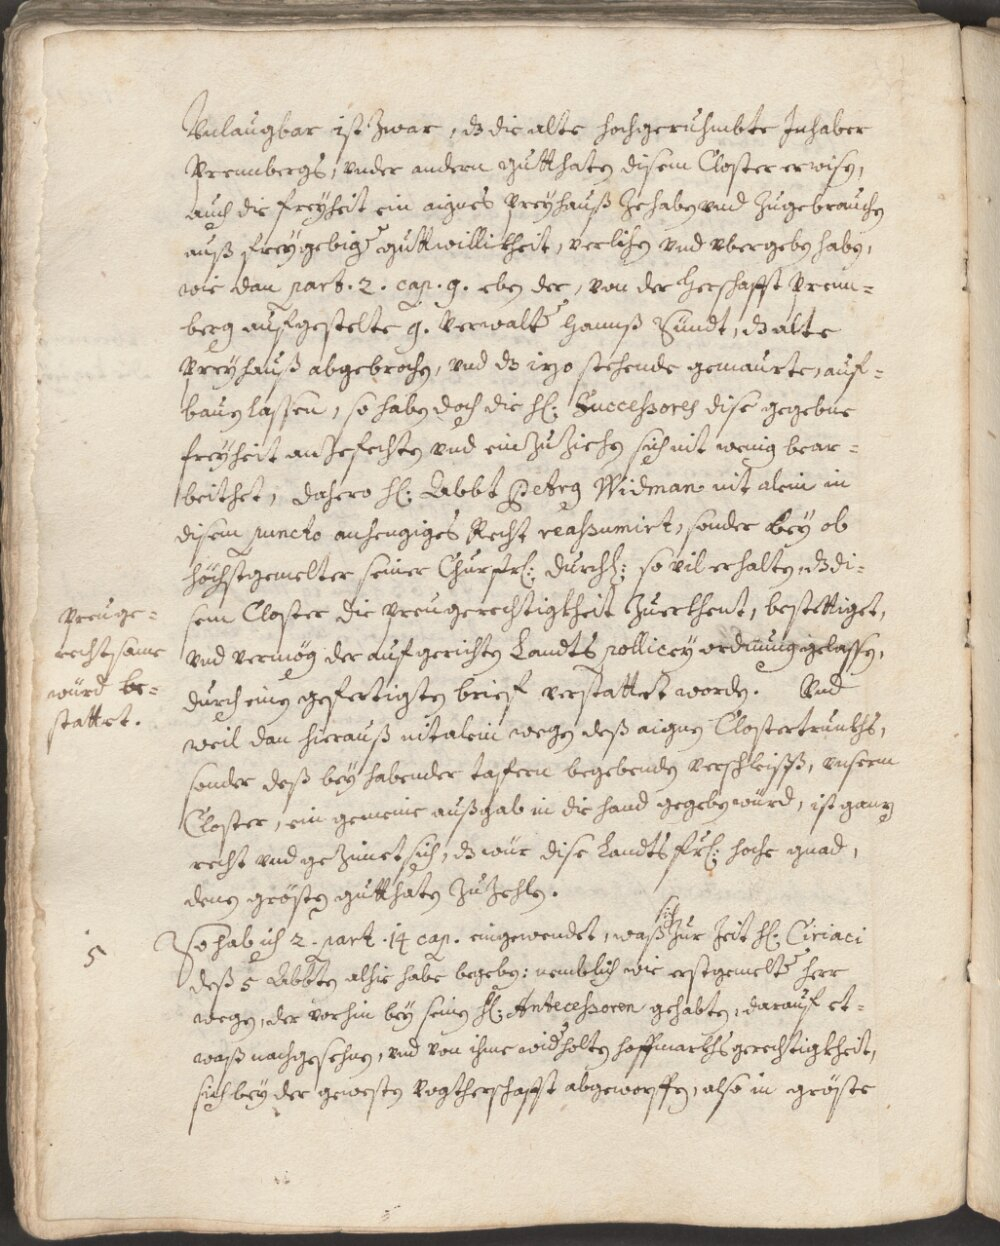 Unlaugbar ist zwar, dz die alte hochgerühmbte Inhaber
Prennbergs, under andern gutthaten disem Closter erwisen,
auch die freyheit ein aignes Preyhauß zehaben und zugebrauchen
auß freygebiger guttwillikheit, verlihen und ubergeben haben,
wie dan part. 2. cap. 9. eben der, von der Herschafft Prenn-
berg aufgestelte g. Verwalter Hannß Zündt, dz alte
Preyhauß abgebrochen, und dz izo stehende gemaurte, auf-
bauen lassen, so haben doch die H: Successores dise gegebne
freyheit anzefechten und einzuziehen sich nit wenig bear-
beithet, dahero H: Abbt Georg Widman nit alein in
disem puncto anhengiges Recht reassumirt, sonder bey ob
höchstgemelter seiner Churfrl: Durchl: so vil erhalten, dz di-
sem Closter die Preugerechtigkheit zuerkhent, bestettiget,
und vermög der aufgerichten Landts pollicey ordnung gelassen,
durch einen gefertigten brief verstattet worden. Und
weil dan hierauß nit alein wegen deß aignen Closter trunkhs,
sonder deß bey habender tafern begebenden verschleiß, unserm
Closter, ein gemeine außgab in die hand gegeben würd, ist ganz
recht und gezimet sich, dz wür dise Landtsfrl: hoche gnad,
denen grösten gutthaten zuzehlen.
Preuge-
rechtsame
würd be-
stattet.
5
So hab ich 2. part. 14 cap. eingewendet, waß sich zur Zeit H: Ciriaci
deß 5 Abbten alhie habe begeben: nemblich wie erstgemelter Herr
wegen, der vorhin bey seinen H: Antecessoren gehabten, darauf et-
waß nachgesehnen, und von ihme widerholten hoffmarkhsgerechtigkheit,
sich bey der gewesten Vogtherschafft abgeworffen, also in gröste